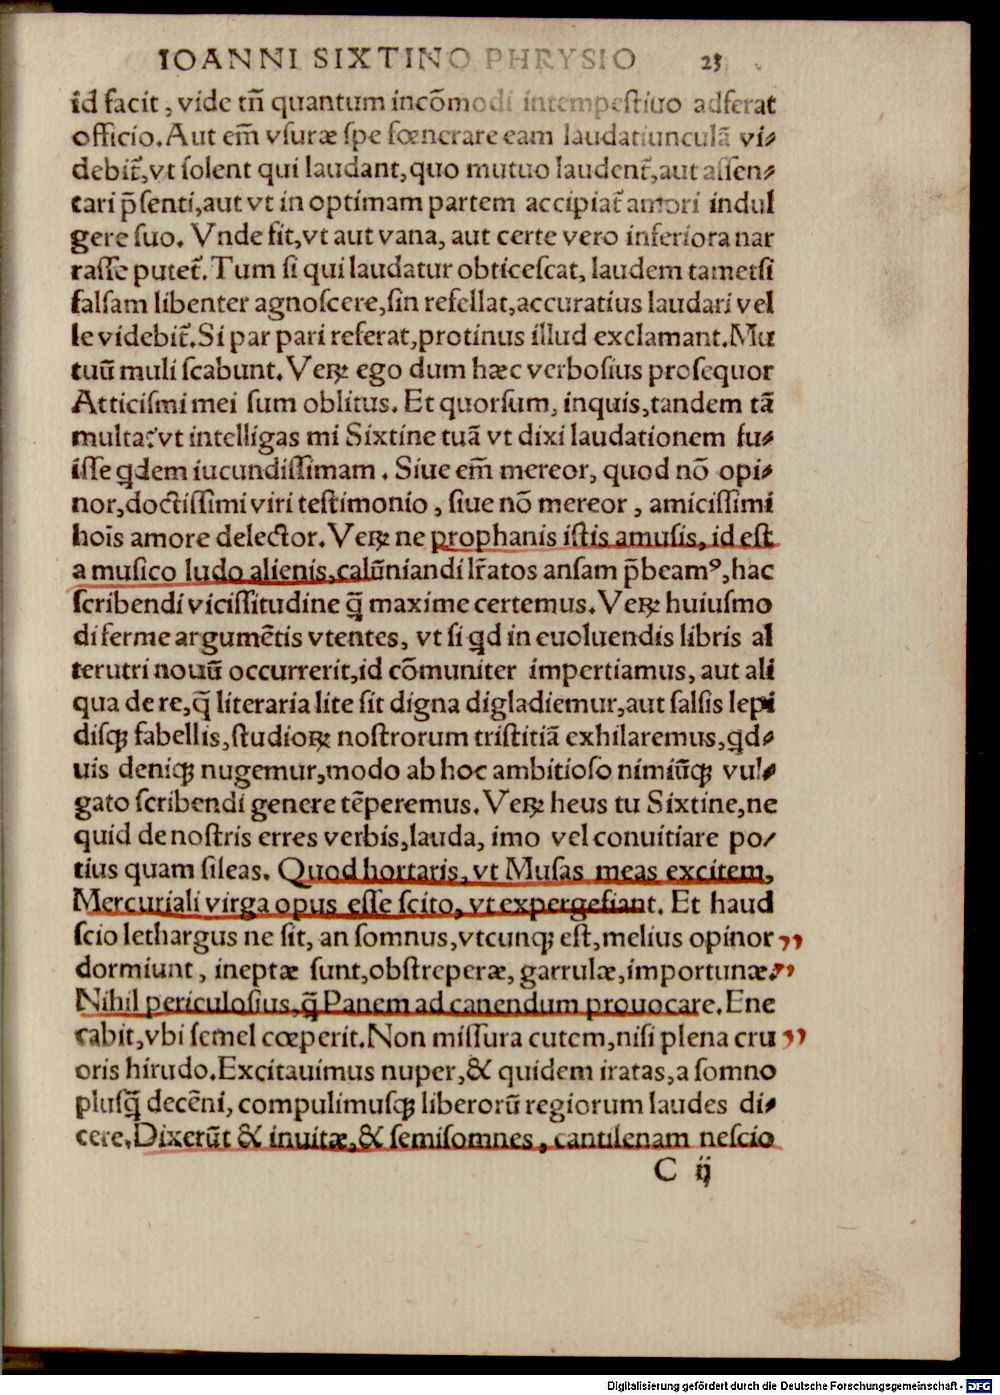 IOANNI SIXTINO PHRYSIO 23
id facit, vide tñ quantum incōmodi intempeſtiuo adferat
officio. Aut em̄ vſuræ ſpe fœnerare eam laudatiunculā vi⸗
debit̃, vt ſolent qui laudant, quo mutuo laudent̃, aut aſſen⸗
tari p̄ſenti, aut vt in optimam partem accipiat̃ amori indul
gere ſuo. Vnde fit, vt aut vana, aut certe vero inferiora nar
raſſe putet̃. Tum ſi qui laudatur obticeſcat, laudem tametſi
falſam libenter agnoſcere, ſin refellat, accuratius laudari vel
le videbit̃. Si par pari referat, protinus illud exclamant. Mu
tuū muli ſcabunt. Veꝝ ego dum hæc verboſius proſequor
Atticiſmi mei ſum oblitus. Et quorſum, inquis, tandem tā
multa? vt intelligas mi Sixtine tuā vt dixi laudationem fu⸗
iſſe qdem iucundiſſimam. Siue em̄ mereor, quod nō opi⸗
nor, doctiſſimi viri teſtimonio, ſiue nō mereor, amiciſſimi
hoīs amore delector. Veꝝ ne prophanis iſtis amuſis, id eſt
a muſico ludo alienis, calūniandi lr̃atos anſam p̄beamꝰ, hac
ſcribendi viciſſitudine q̄ maxime certemus. Veꝝ huiuſmo
di ferme argumētis vtentes, vt ſi qd in euoluendis libris al
terutri nouū occurrerit, id cōmuniter impertiamus, aut ali
qua de re, q̄ literaria lite ſit digna digladiemur, aut ſalſis lepi
diſqꝫ fabellis, ſtudioꝝ noſtrorum triſtitiā exhilaremus, qd⸗
uis deniqꝫ nugemur, modo ab hoc ambitioſo nimiūqꝫ vul⸗
gato ſcribendi genere tēperemus. Veꝝ heus tu Sixtine, ne
quid de noſtris erres verbis, lauda, imo vel conuitiare po⸗
tius quam ſileas. Quod hortaris, vt Muſas meas excitem,
Mercuriali virga opus eſſe ſcito, vt expergefiant. Et haud
ſcio lethargus ne ſit, an ſomnus, vtcunqꝫ eſt, melius opinor ,,
dormiunt, ineptæ ſunt, obſtreperæ, garrulæ, importunæ. ,,
Nihil periculoſius, q̄ Panem ad canendum prouocare. Ene
cabit, vbi ſemel cœperit. Non miſſura cutem, niſi plena cru ,,
oris hirudo. Excitauimus nuper, & quidem iratas, a ſomno
pluſq̄ decēni, compulimuſqꝫ liberorū regiorum laudes di⸗
cere. Dixerūt & inuitæ, & ſemiſomnes, cantilenam neſcio
C ij
Digitalisierung gefördert durch die Deutsche Forschungsgemeinschaft - DFG